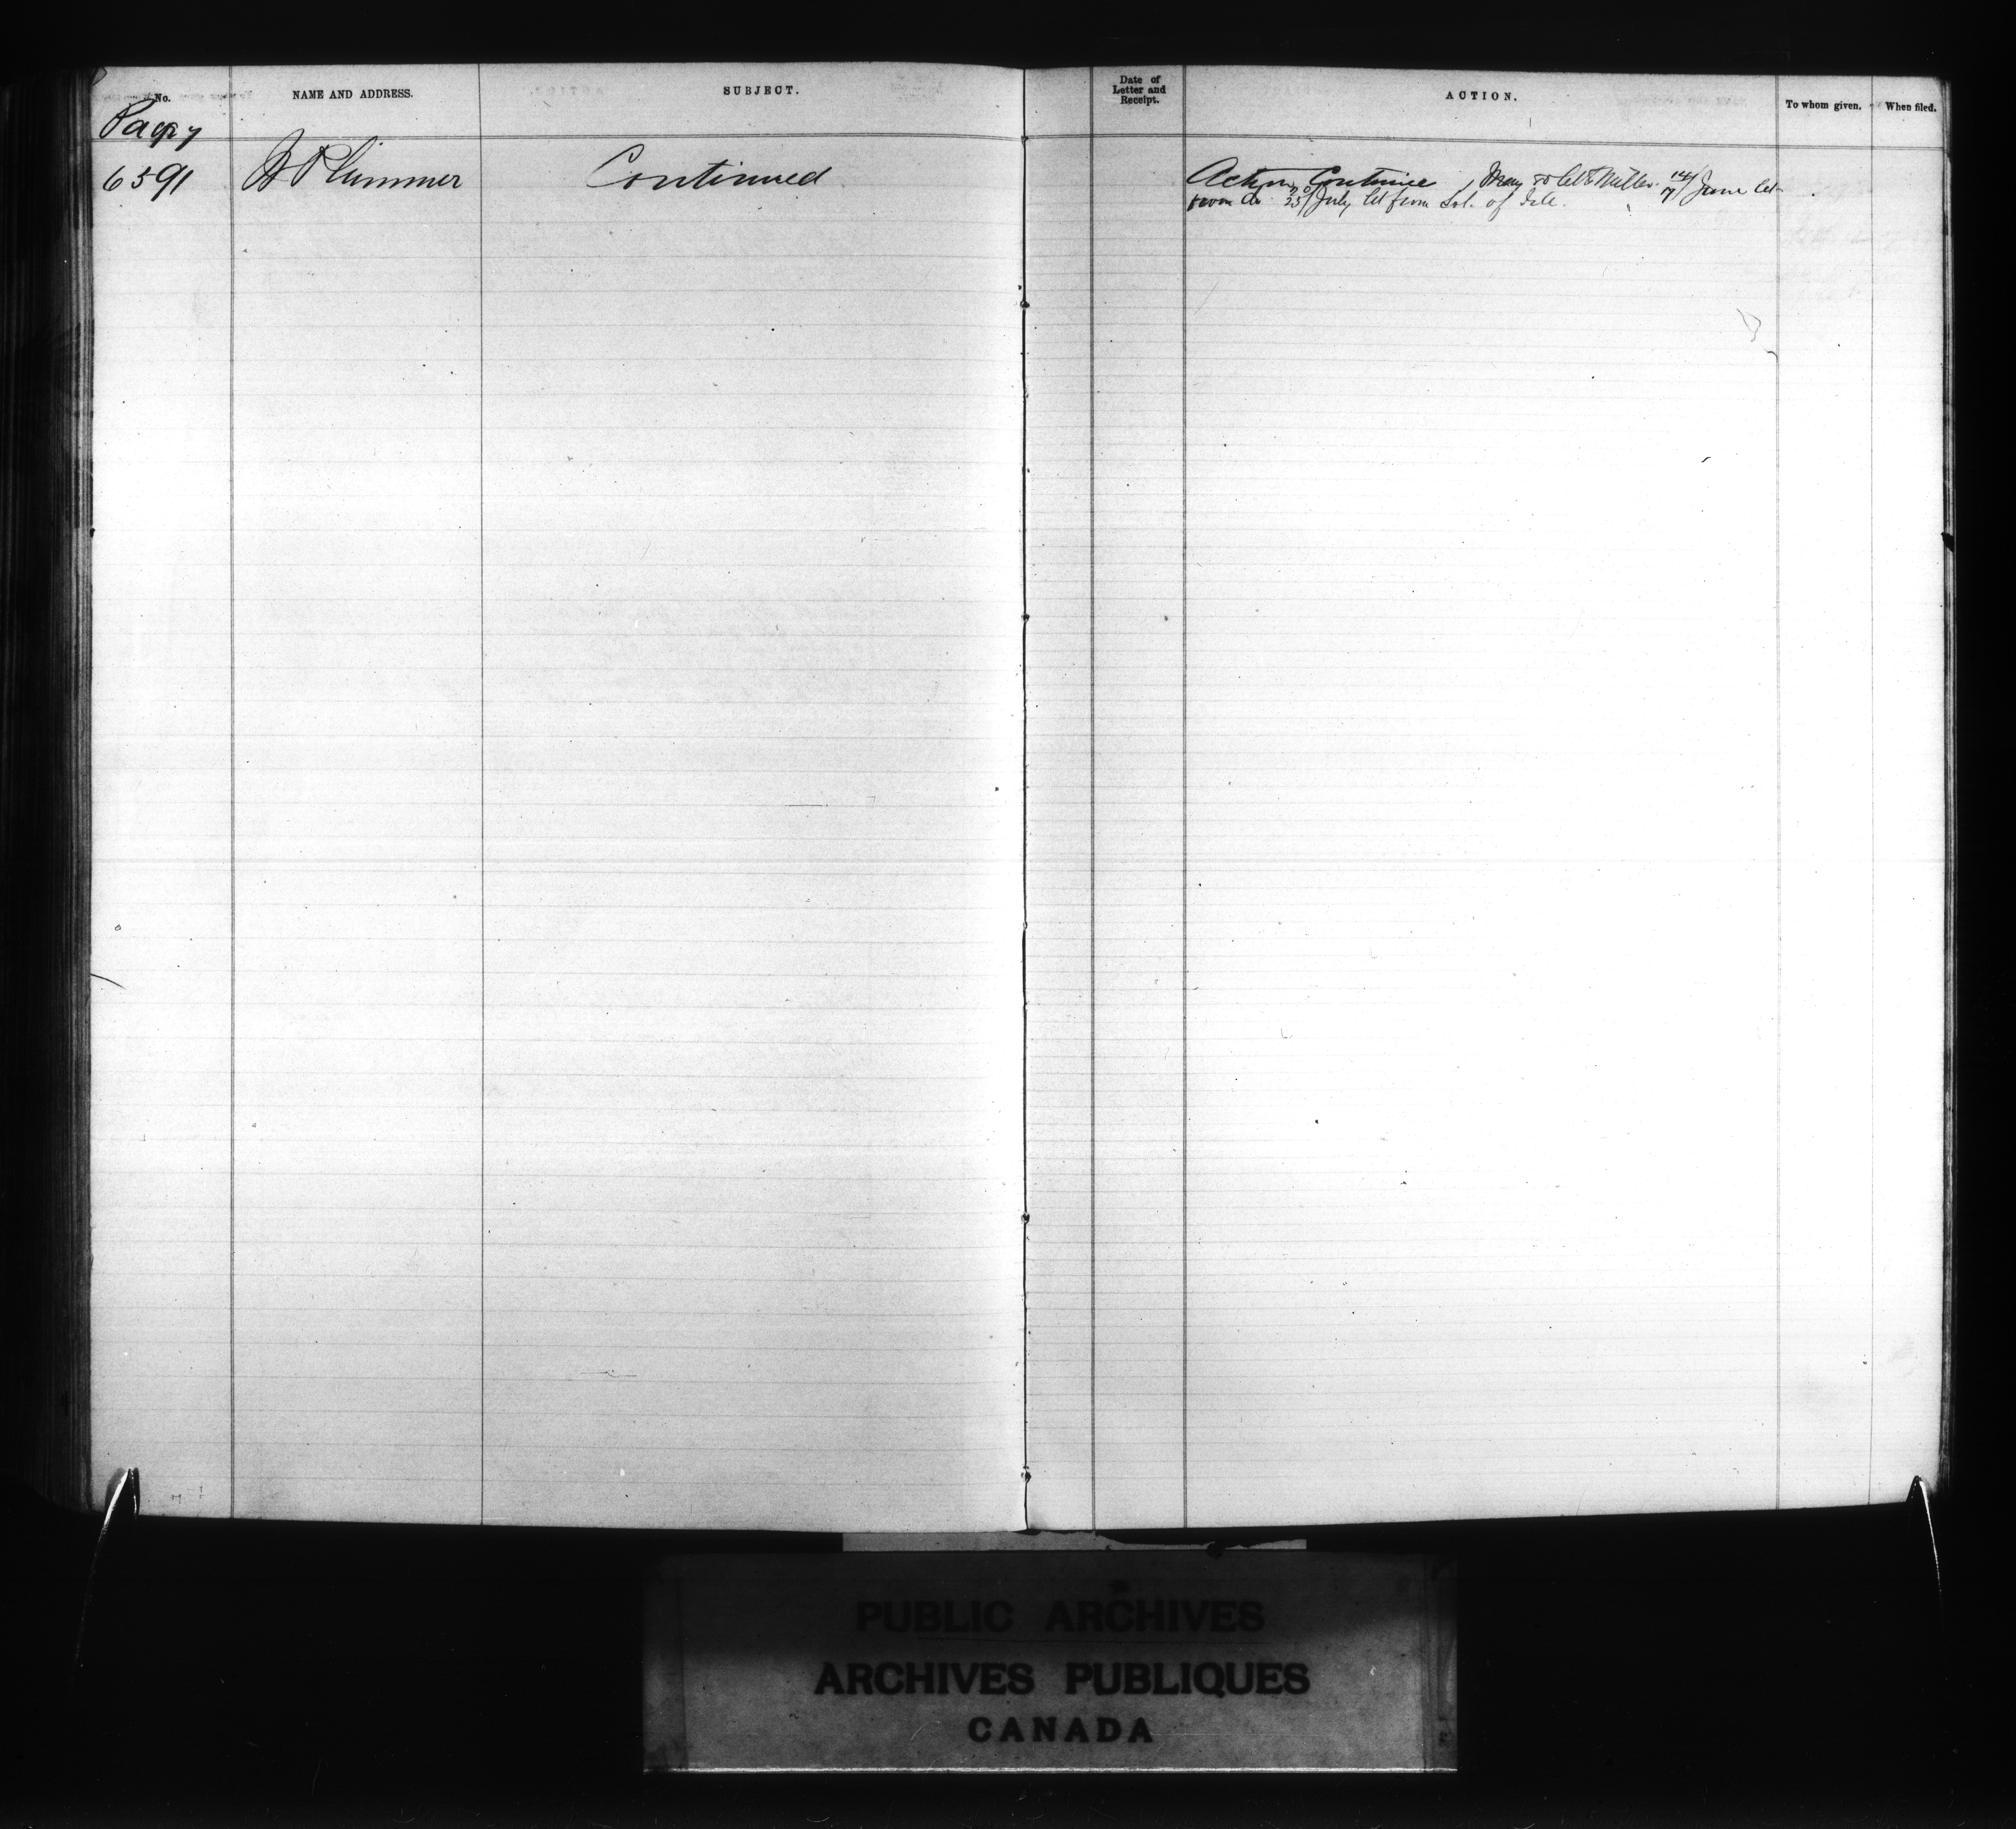 No.
NAME AND ADDRESS.
SUBJECT.
Date of
Letter and
Receipt.
ACTION.
To whom given.
When filed.
6591
Plummer
Continued
Action Continue May let to Miller 14/7 June let
from do 20/25 July let from Sol. of
PUBLIC ARCHIVES
ARCHIVES PUBLIQUES
CANADA